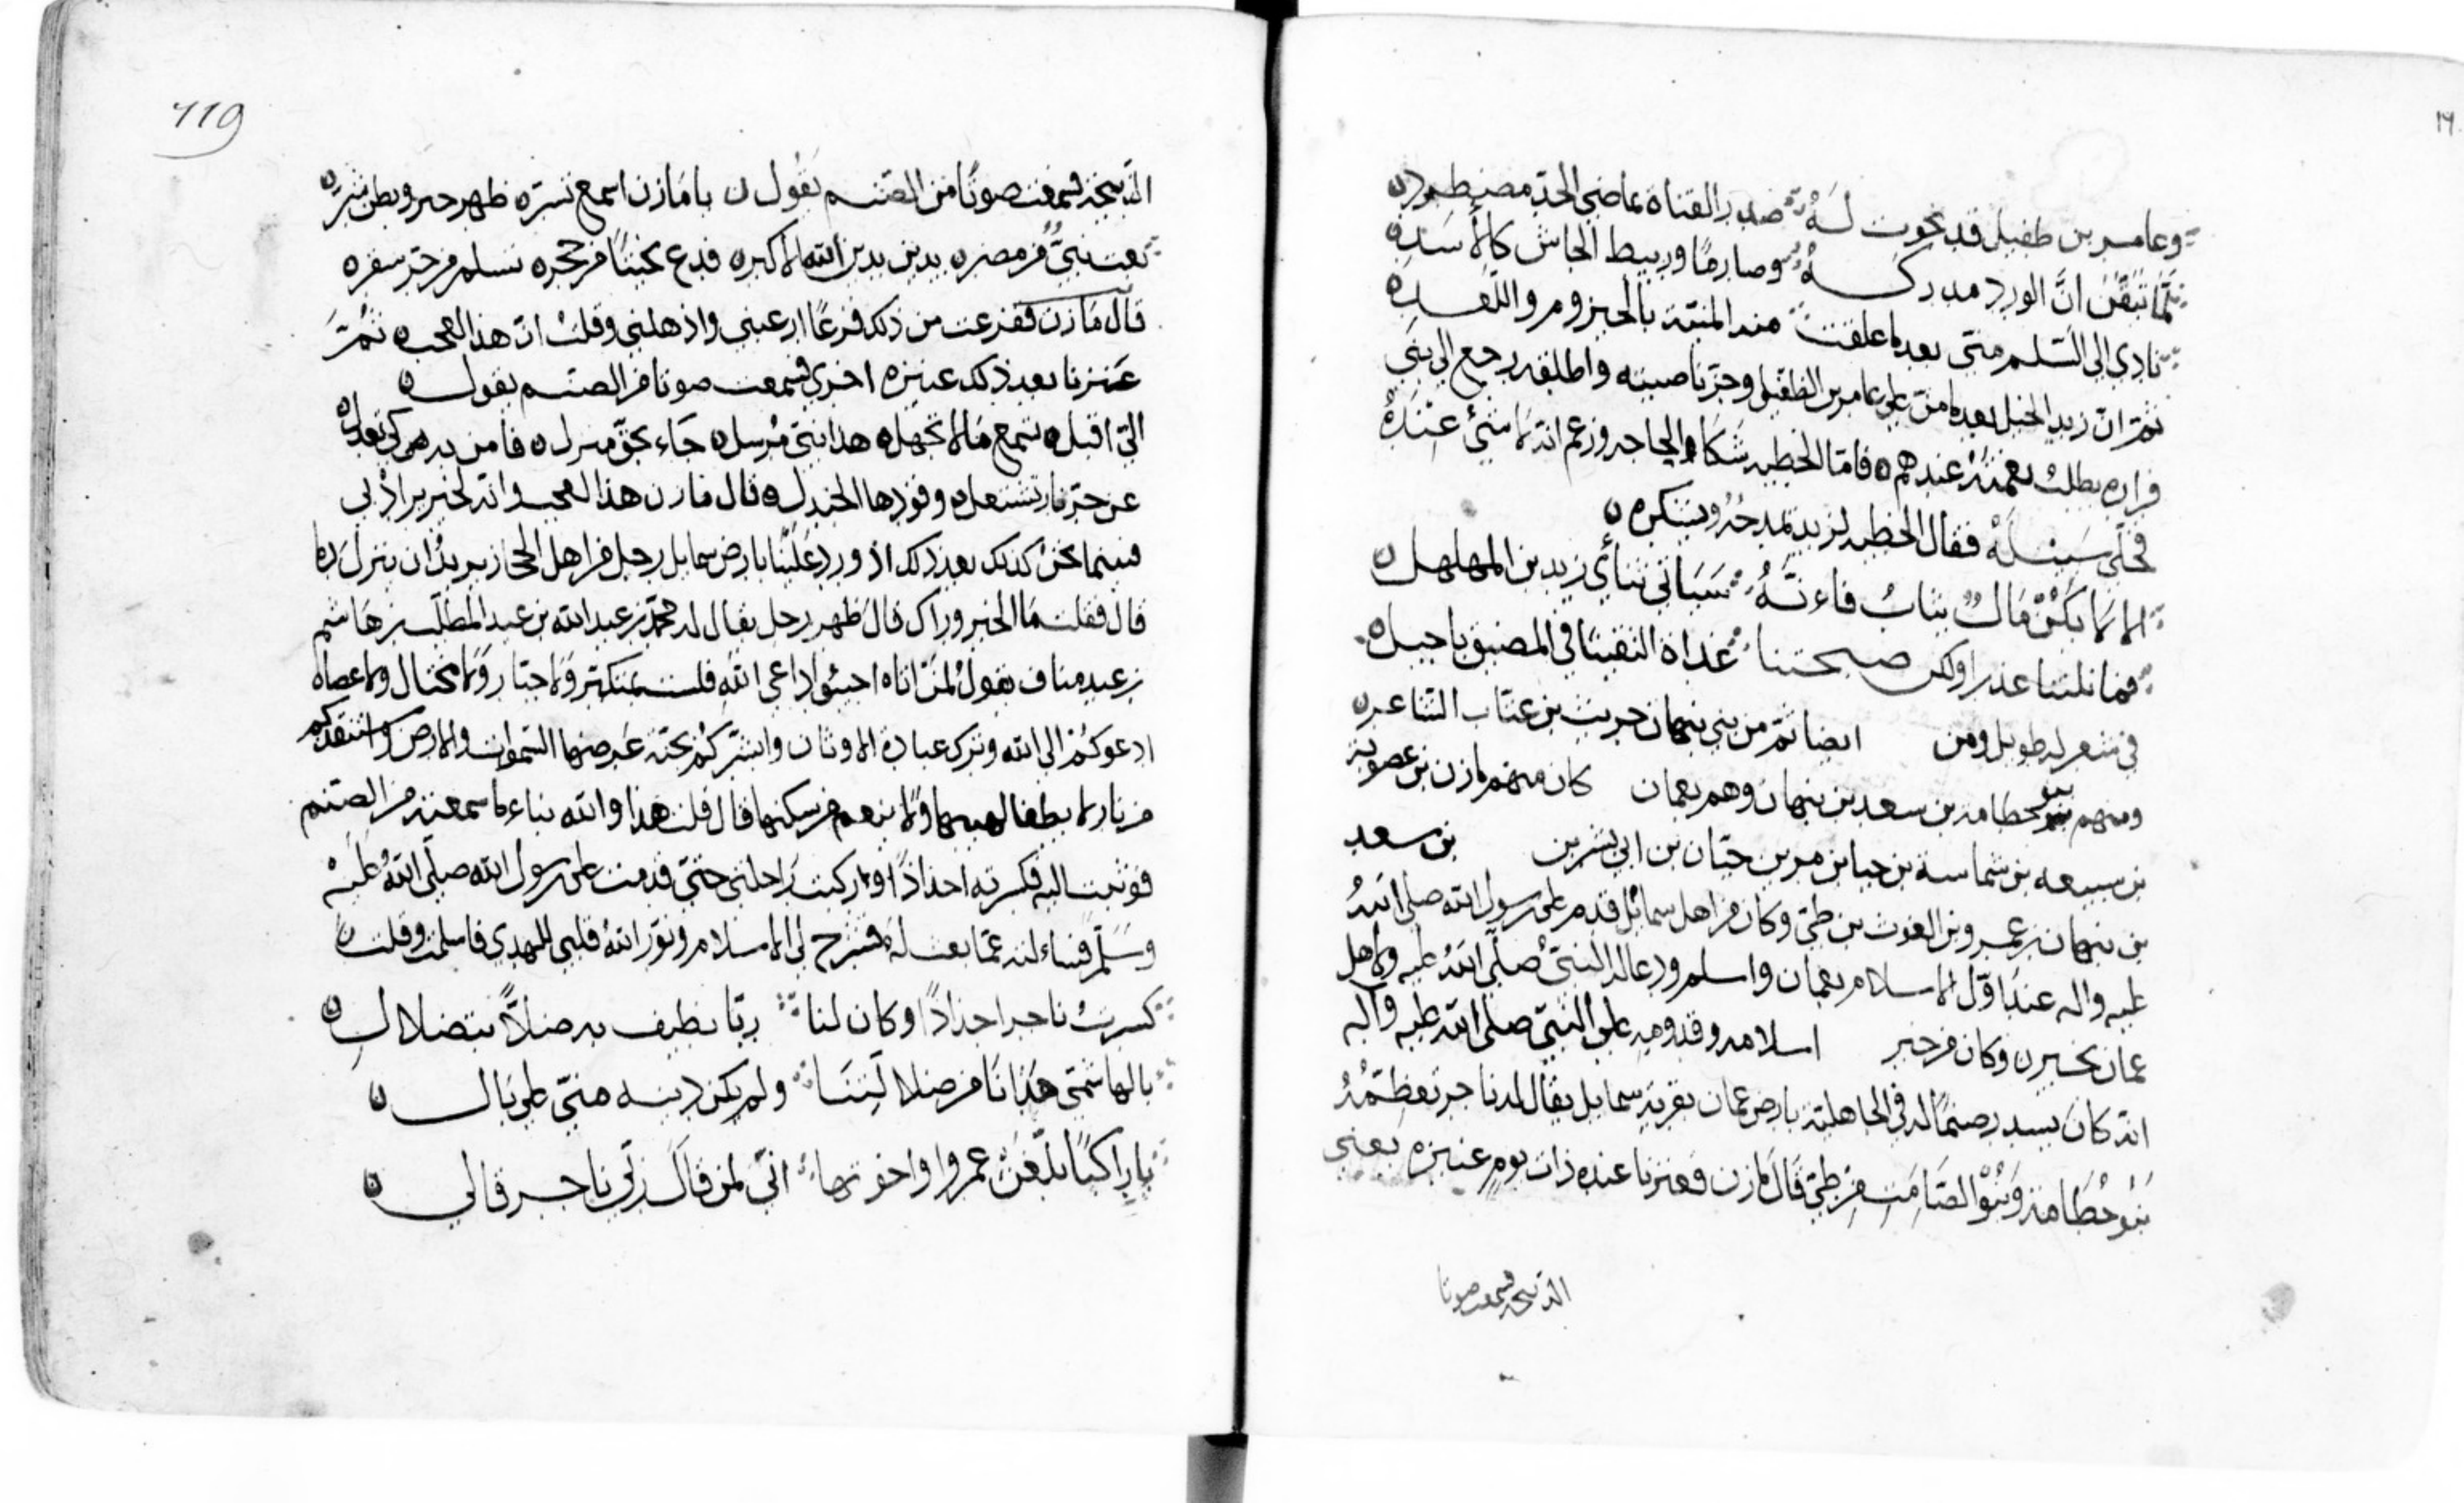 وعامر بن طفيل قد نحوت له صدر القناة بماضي الحد مضطرد
لما تيقن ان الورد مدركه وصارما وربيط الجاش كالاسد
نادى الى السلم مني بعد ما علقت منه المنية بالحيزوم واللغد
ثم ان زيد الخيل بعد ما من على عامر بن الطفيل وجز ناصيته واطلقه رجع الى بني
فزاره يطلب نعمته عندهم فاما الحطيه شكا الحاجه وزعم انه لا شيء عنده
فخلى سبيله فقال الحطيه لزيد يمدحه ويشكره
الا يكن مال يثاب فانه سياتي ثنائي زيد بن المهلهل
فما نلتنا عذرا ولكن صبحتنا غداة التقينا في المضيق باخيل
في شعر له طويل ومن ايضا ثم من بني نبهان حريث بن عتاب الشاعر
ومنهم بنو خطامه بن سعد بن نبهان وهم بعمان كان منهم مازن بن غضوبة
بن سبيعه بن شماسة بن حيا بن مر بن حيان بن ابي بشر بن بن سعد
بن نبهان بن عمرو بن الغوث بن طي وكان من اهل سمائل قدم على رسول الله صلى الله
عليه واله عند اول الاسلام بعمان واسلم ودعا له النبي صلى الله عليه ولاهل
عمان بخير وكان من خبر اسلامه وقدومه على النبي صلى الله عليه وآله
انه كان يسدر صنما له في الجاهلية بارض عمان بقرية سمايل يقال له ناجر تعظمه
بنو خطامة وبنو الصامت من طي قال مازن فعترنا عنده ذات يوم عتيره يعني
الذبيحة فسمعت صوتا
119
الذبيحة فسمعت صوتا من الصنم يقول يا مازن اسمع تسر ظهر خير وبطن شر
بعث نبي من مضر بدين بدين الله الاكبر فدع نحيتا من حجر تسلم من حر سقر
قال مازن ففزعت من ذلك فزعا ارعبني واذهلني وقلت ان هذا لعجب ثم
عترنا بعد ذلك عتيره اخرى فسمعت صوتا من الصنم يقول
الي اقبل تسمع ما لا تجهل هذا نبي مرسل جاء بحق منزل فامن به كي تعدل
عن حر نار تشعل وقودها الجندل قال مازن هذا لعجب وانه لخير يراد بي
فبينما نحن كذلك بعد ذلك اذ ورد علينا بارض سمايل رجل من اهل الحجاز يريد ان ينزل دما
قال فقلت ما الخبر وراك قال ظهر رجل يقال له محمد بن عبد الله بن عبد المطلب بن هاشم
بن عبد مناف يقول لمن اتاه اجيبوا داعي الله فلست بمتكبر ولا جبار ولا مختال ولا عصاه
ادعوكم الى الله وترك عبادة الاوثان وابشركم بجنة عرضها السموات والارض واستنقذكم
من نار لا يطفا لهيبها ولا ينعم من سكنها قال قلت هذا والله نباء ما سمعته من الصنم
فوثبت اليه فكسرته اجذاذا وركبت راحلتي حتى قدمت على رسول الله صلى الله عليه
وسلم فسالته عما بعث له فشرح لي الاسلام ونور الله قلبي للهدى فاسلمت وقلت
كسرت ناجر اجذاذا وكان لنا ربا نطيف به ضلا بتضلال
بالهاشمي هدانا من ضلالتنا ولم يكن دينه مني على بال
يا راكبا بلغن عمروا واخوتها اني لمن قال ربي ناجر قالي